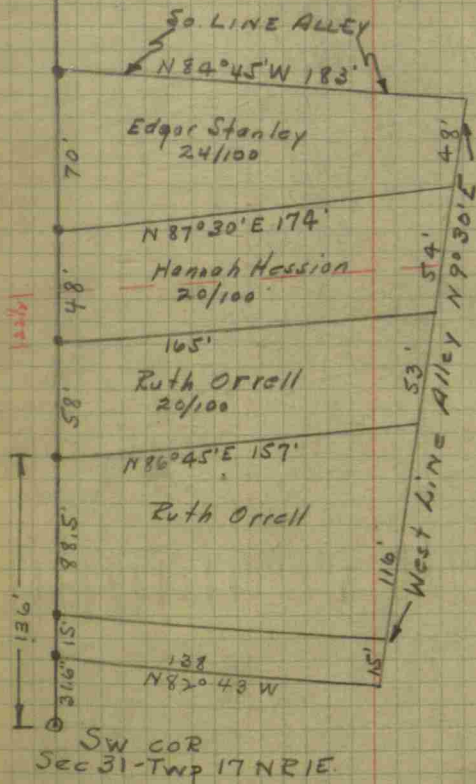 So. LINE ALLEY
N 84°45' W 183'
Edgar Stanley
24/100
70'
48'
N 87°30' E 174'
Hannah Hession
20/100
48'
54'
West Line Alley N 9°30' E
165'
Ruth Orrell
20/100
58'
53'
N 86°45' E 157'
Ruth Orrell
88.5'
116'
136'
15'
15'
138
N 82° 43 W
31.6"
SW COR
Sec 31-Twp 17 N R 1 E.